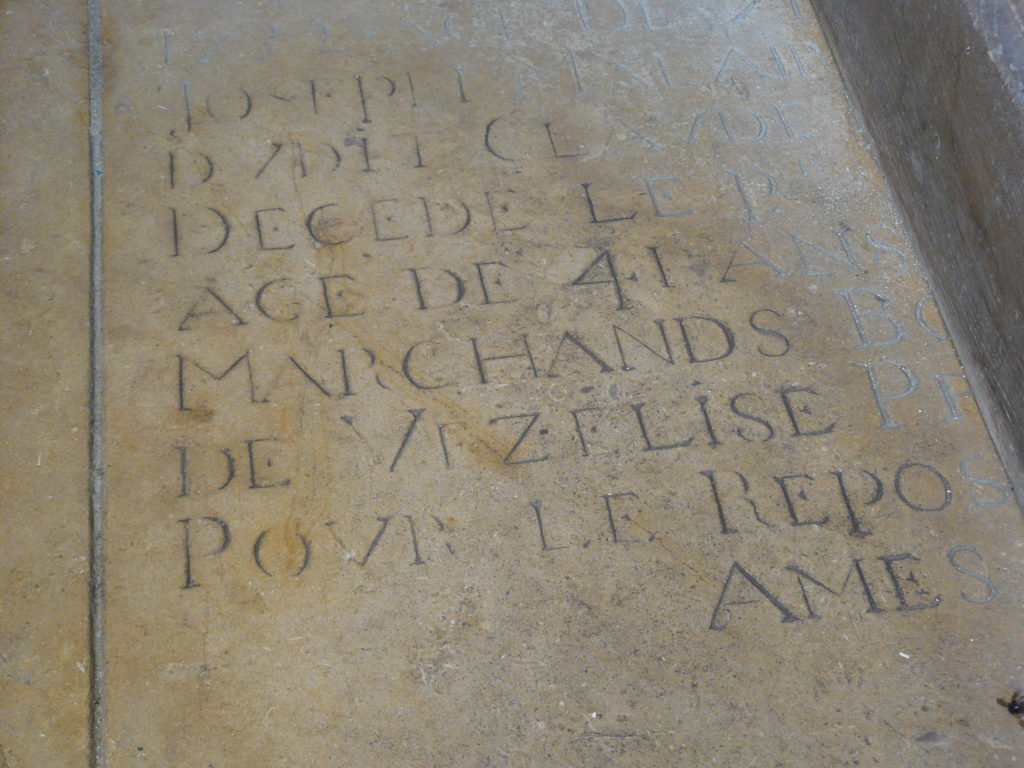 JOSEPH MALAIR
DVDIT CLAVDE
DECEDE LE P.R
AGE DE 41 ANS
MARCHANDS BO
DE VEZELISE PR
POVR LE REPOS
AMES